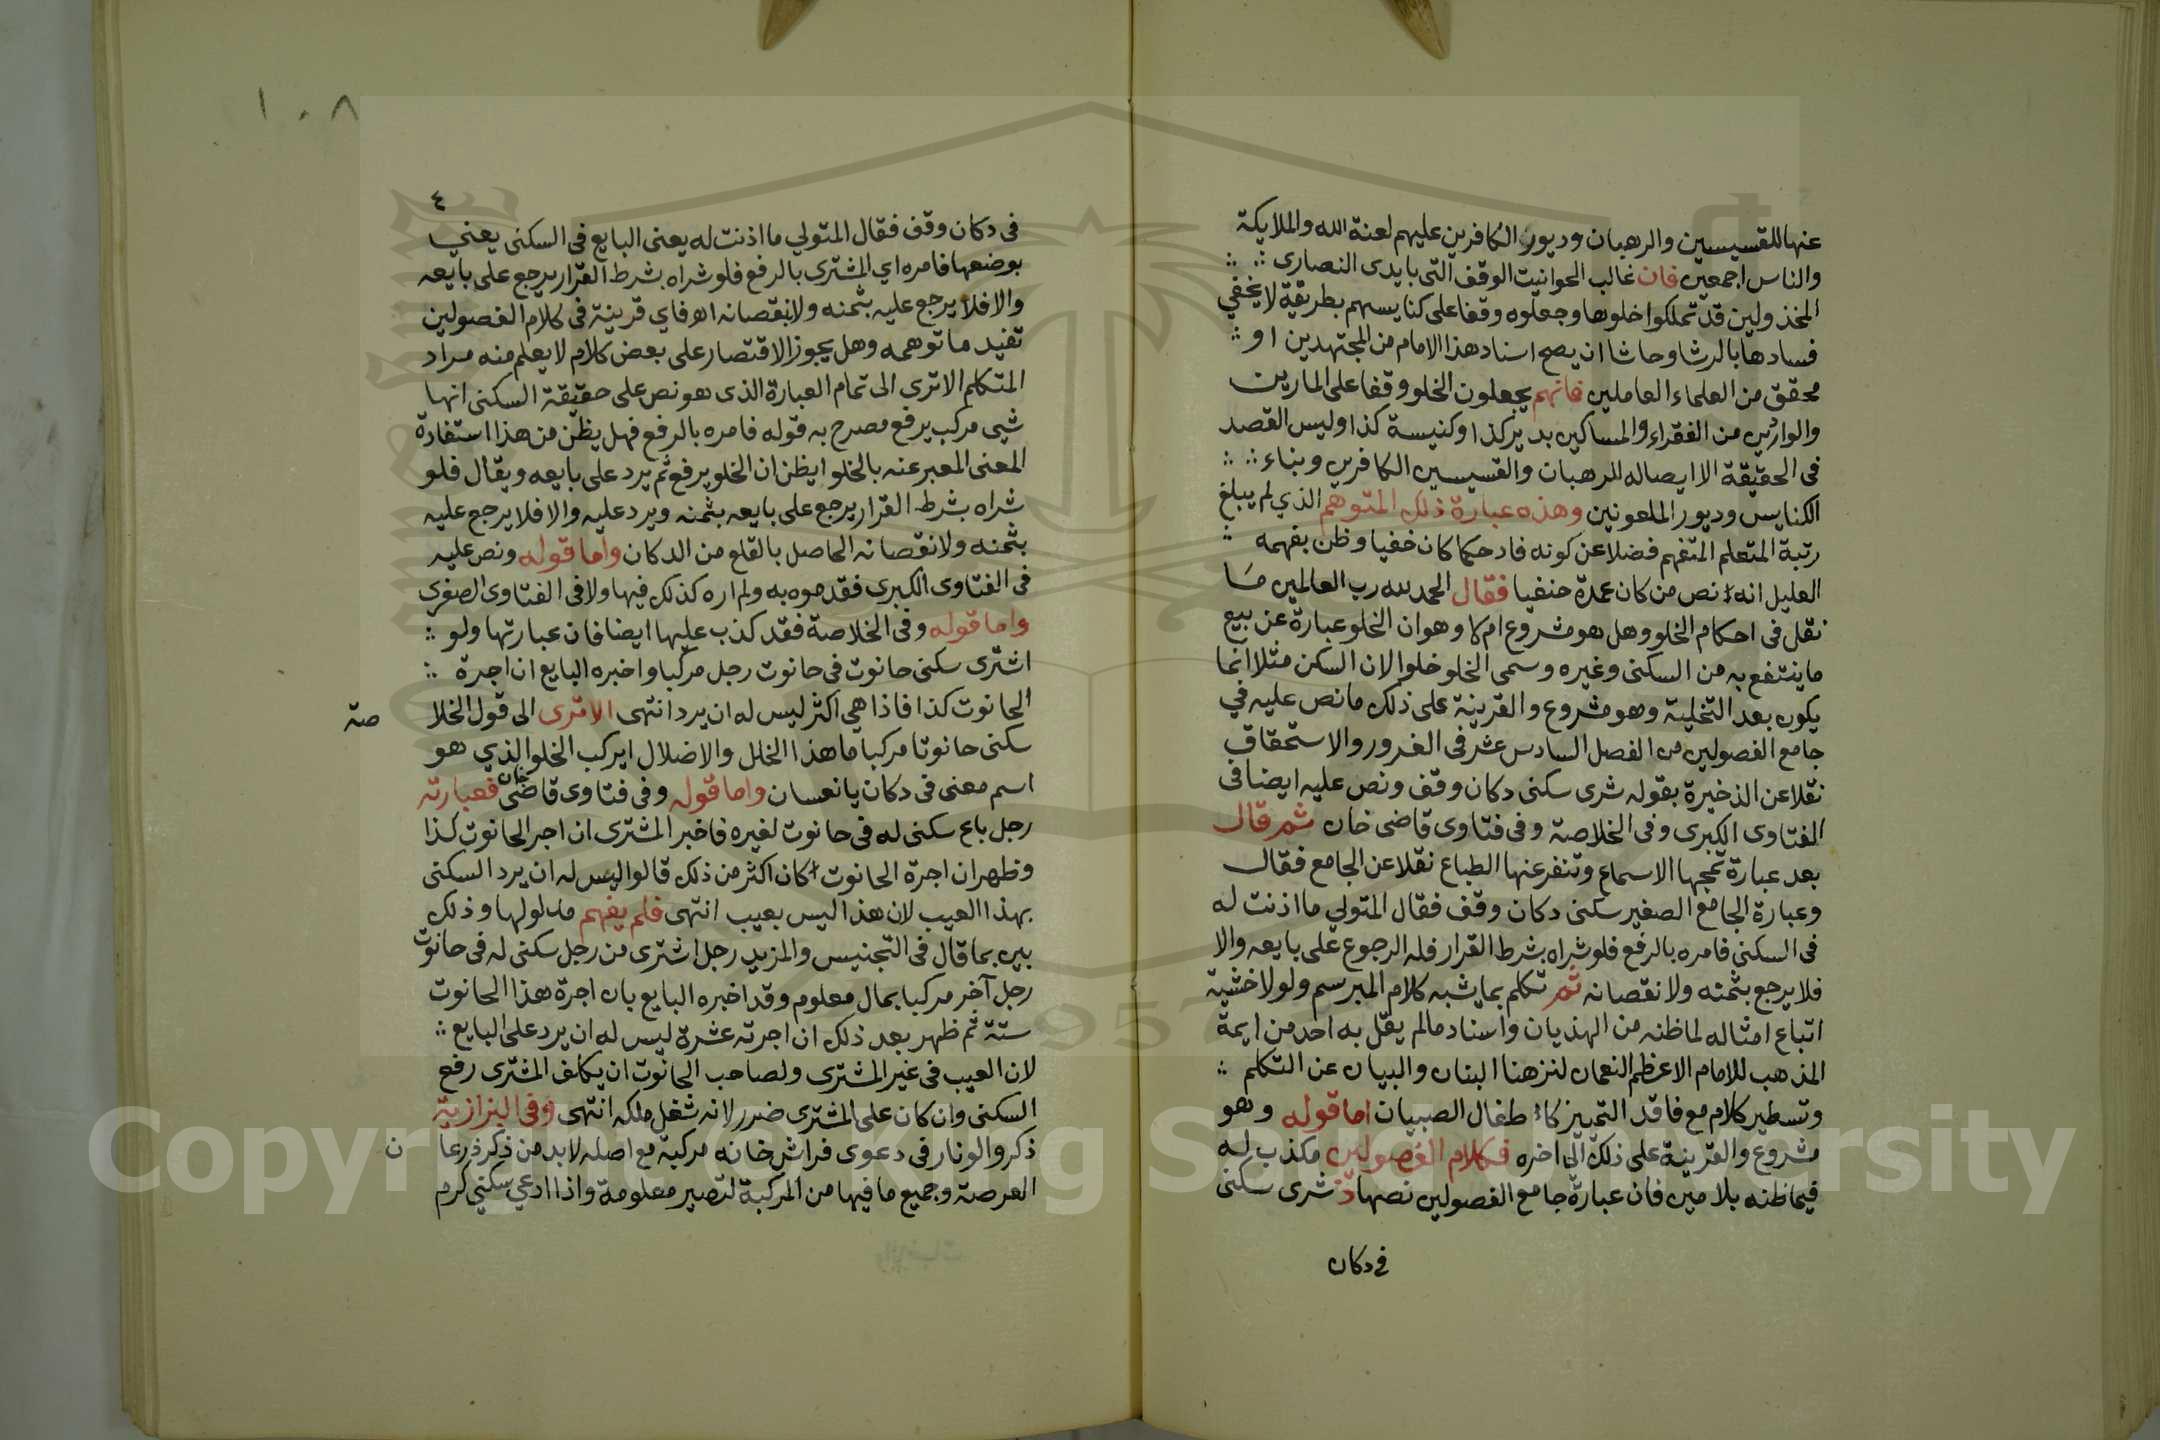 عنها للقسيسين والرهبان وديور الكافرين عليهم لعنة الله والملايكة
والناس اجمعين فان غالب الحوانيت الوقف التى بايدى النصارى
المخذولين قد تملكوا خلوها وجعلوه وقفا على كنايسهم بطريقة لا يخفي
فسادها بالرشا وحاشا ان يصح اسناد هذا الامام من المجتهدين او
محقق من العلماء العاملين فانهم يجعلون الخلو وقفا على المارين
والواردين من الفقراء والمساكين بدير كذا وكنيسة كذا وليس القصد
فى الحقيقة الا ايصاله للرهبان والقسيسين الكافرين وبناء
الكنايس وديور الملعونين وهذه عبارة ذلك المتوهم الذي لم يبلغ
رتبة المتعلم المتفهم فضلا عن كونه فادحكما كان خفيا وظن بفهمه
العليل انه نص من كان عمدة حنفيا فقال الحمد لله رب العالمين ما
نقل فى احكام الخلو وهل هو مشروع ام لا وهو ان الخلو عبارة عن بيع
ما ينتفع به من السكنى وغيره وسمى الخلو خلوا لان السكن مثلا انما
يكون بعد التخلية وهو مشروع والقرينة على ذلك ما نص عليه في
جامع الفصولين من الفصل السادس عشر فى الغرور والاستحقاق
نقلا عن الذخيرة بقوله شرى سكنى دكان وقف ونص عليه ايضا فى
الفتاوى الكبرى وفى الخلاصة وفى فتاوى قاضى خان ثم قال
بعد عبارة تمجها الاسماع وتنفر عنها الطباع نقلا عن الجامع فقال
وعبارة الجامع الصغير سكنى دكان وقف فقال المتولي ما اذنت له
فى السكنى فامره بالرفع فلو شراه بشرط القرار فله الرجوع على بايعه والا
فلا يرجع بثمنه ولا نقصانه ثم تكلم بما يشبه كلام المبرسم ولولا خشية
اتباع امثاله لما ظنه من الهذيان واسناد ما لم يقل به احد من ايمة
المذهب للامام الاعظم النعمان لنزهنا البنان والبيان عن التكلم
وتسطير كلام مع فاقد التمييز كالاطفال الصبيان اما قوله وهو
مشروع والقرينة على ذلك الى اخره فكلام الفصولين مكذب له
فيما ظنه بلا مين فان عبارة جامع الفصولين نصها ذ شرى سكنى
فى دكان
١٠٨
٤
فى دكان وقف فقال المتولي ما اذنت له يعنى البايع فى السكنى يعني
بوضعها فامره اي المشترى بالرفع فلو شراه بشرط القرار يرجع على بايعه
والا فلا يرجع عليه بثمنه ولا بنقصانه اه فاي قرينة فى كلام الفصولين
تفيد ما توهمه وهل يجوز الاقتصار على بعض كلام لا يعلم منه مراد
المتكلم الا ترى الى تمام العبارة الذى هو نص على حقيقة السكنى انها
شيى مركب يرفع مصرح به قوله فامره بالرفع فهل يظن من هذا استفادة
المعنى المعبر عنه بالخلو ايظن ان الخلو يرفع ثم يرد على بايعه ويقال فلو
شراه بشرط القرار يرجع على بايعه بثمنه ويرد عليه والا فلا يرجع عليه
بثمنه ولا نقصانه الحاصل بالقلع من الدكان واما قوله ونص عليه
فى الفتاوى الكبرى فقد موه به ولم اره كذلك فيها ولا فى الفتاوى الصغرى
واما قوله وفى الخلاصة فقد كذب عليها ايضا فان عبارتها ولو
اشترى سكنى حانوت فى حانوت رجل مركبا واخبره البايع ان اجرة
الحانوت كذا فاذا هي اكثر ليس له ان يرد انتهى الا ترى الى قول الخلا
صة
سكنى حانوتا مركبا ما هذا الخلل والاضلال ايركب الخلو الذي هو
اسم معنى فى دكان يا نعسان واما قوله وفى فتاوى قاضى خان فعبارته
رجل باع سكنى له فى حانوت لغيره فاخبر المشترى ان اجر الحانوت كذا
وظهر ان اجرة الحانوت كان اكثر من ذلك قالوا ليس له ان يرد السكنى
بهذا العيب لان هذا ليس بعيب انتهى فلم يفهم مدلولها وذلك
بين بما قال فى التجنيس والمزيد رجل اشترى من رجل سكنى له فى حانوت
رجل آخر مركبا بمال معلوم وقد اخبره البايع بان اجرة هذا الحانوت
ستة ثم ظهر بعد ذلك ان اجرته عشرة ليس له ان يرد على البايع
لان العيب فى غير المشترى ولصاحب الحانوت ان يكلف المشترى رفع
السكنى وان كان على المشترى ضرر لانه شغل ملكه انتهى وفى البزازية
ذكروا لو نار فى دعوى فراش خانه مركبة مع اصله لا بد من ذكر ذرعا
ن
العرصة وجميع ما فيها من المركبة لتصير معلومة واذا ادعي سكني كرم
Copyright © King Saud University
1957